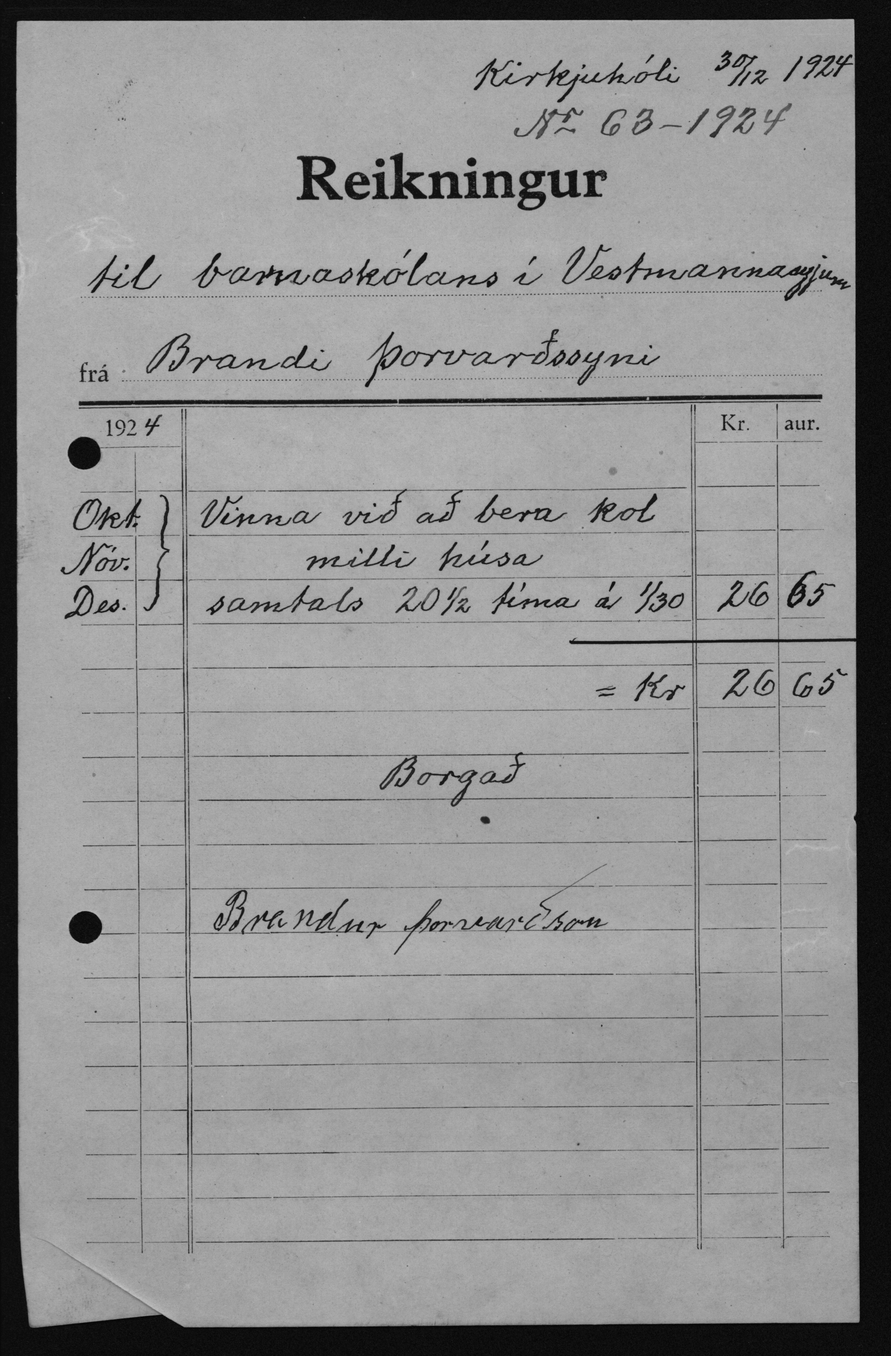 Kirkjuhóli 30/12 1924
Nr 63-1924
Reikningur
til barnaskólans í Vestmannaeyjum
frá Brandi Þorvarðssyni
1924 Kr. aur.
Okt. Vinna við að bera kol
Nóv. milli húsa
Des. samtals 20 1/2 tíma á 1/30 26 65
= Kr 26 65
Borgað
Brandur Þorvarðsson